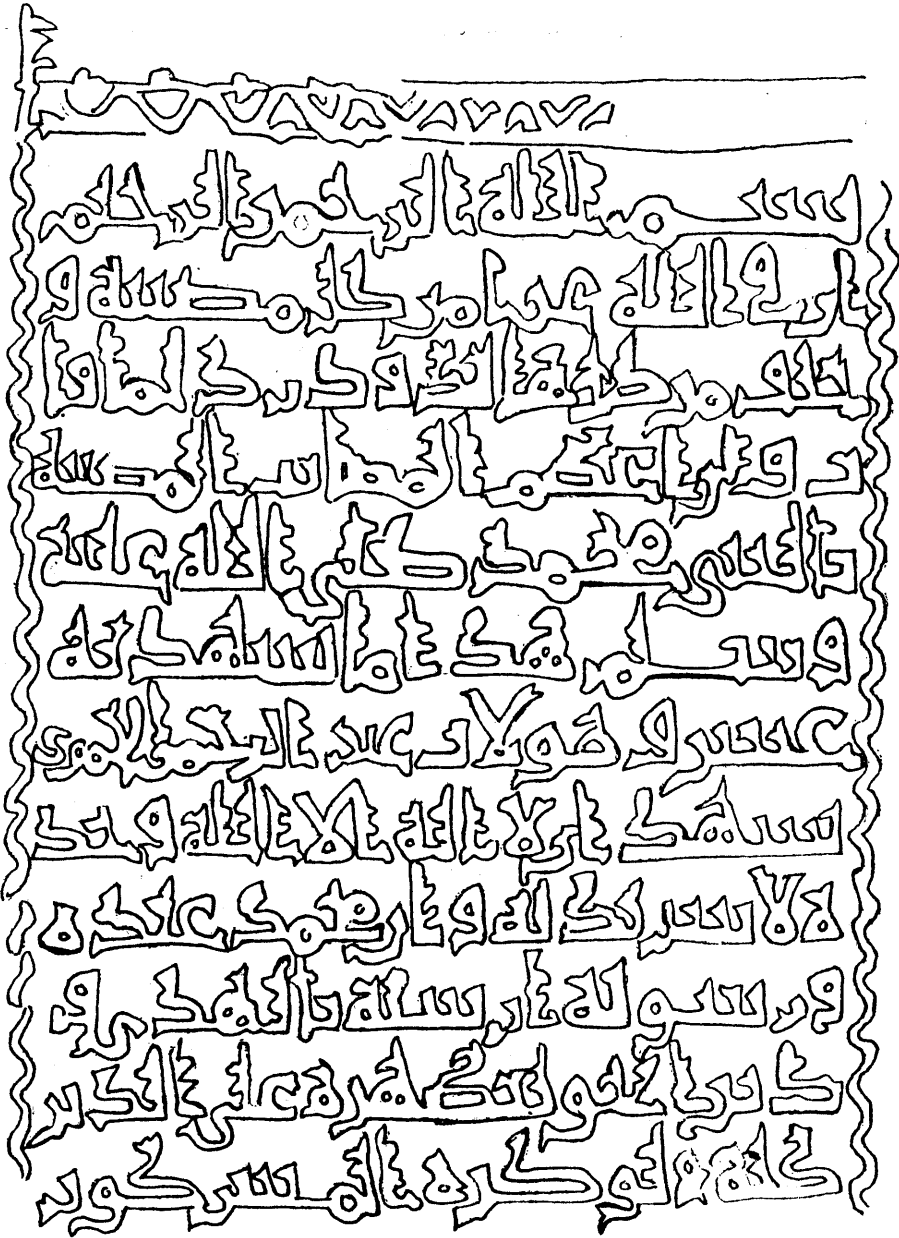 بسم الله الرحمن الرحيم
ان في الله عزا من كل مصيبة و
خلف من كل هالك ودرك لما فا
ت وان اعظم المصائب المصيبة
بالنبي محمد صلى الله عليه
وسلم هذا ما يشهد به
عبد
يشهد ان لا اله الا الله وحد
ه لا شريك له وان محمد عبده
ورسوله ارسله بالهدى و
دين الحق ليظهره على الدين
كله ولو كره المشركون